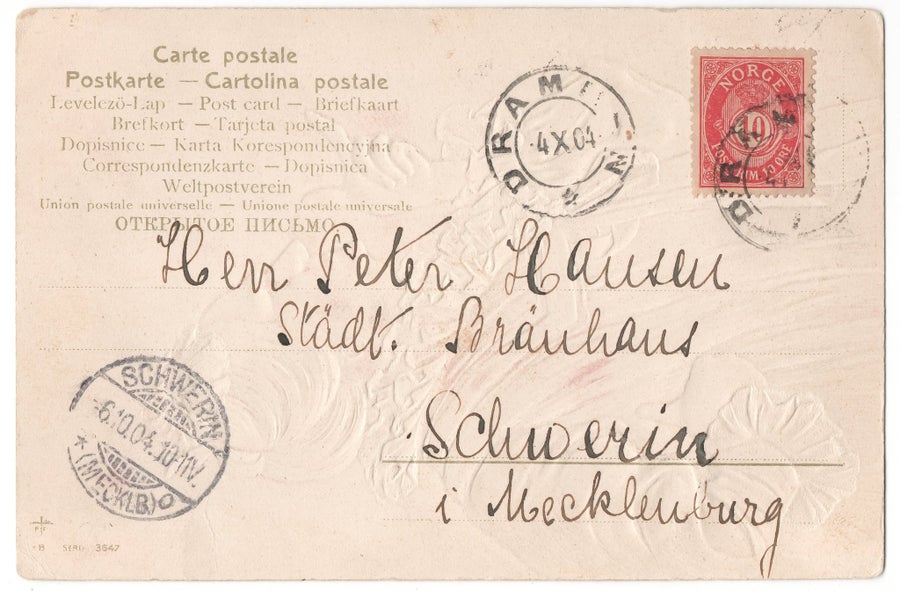 Carte postale
Postkarte — Cartolina postale
Levelezö-Lap — Post card — Briefkaart
Brefkort — Tarjeta postal
Dopisnice — Karta Korespondencyjna
Correspondenzkarte — Dopisnica
Weltpostverein
Union postale universelle — Unione postale universale
ОТКРЫТОЕ ПИСЬМО
DRAMMEN
4 X 04
NORGE
10
POSTFRIM. 10 ØRE
Herr Peter Hansen
Städt. Bräuhaus
Schwerin
i Mecklenburg
SCHWERIN
-6.10.04.10-11V.
* (MECKLB) o
3647